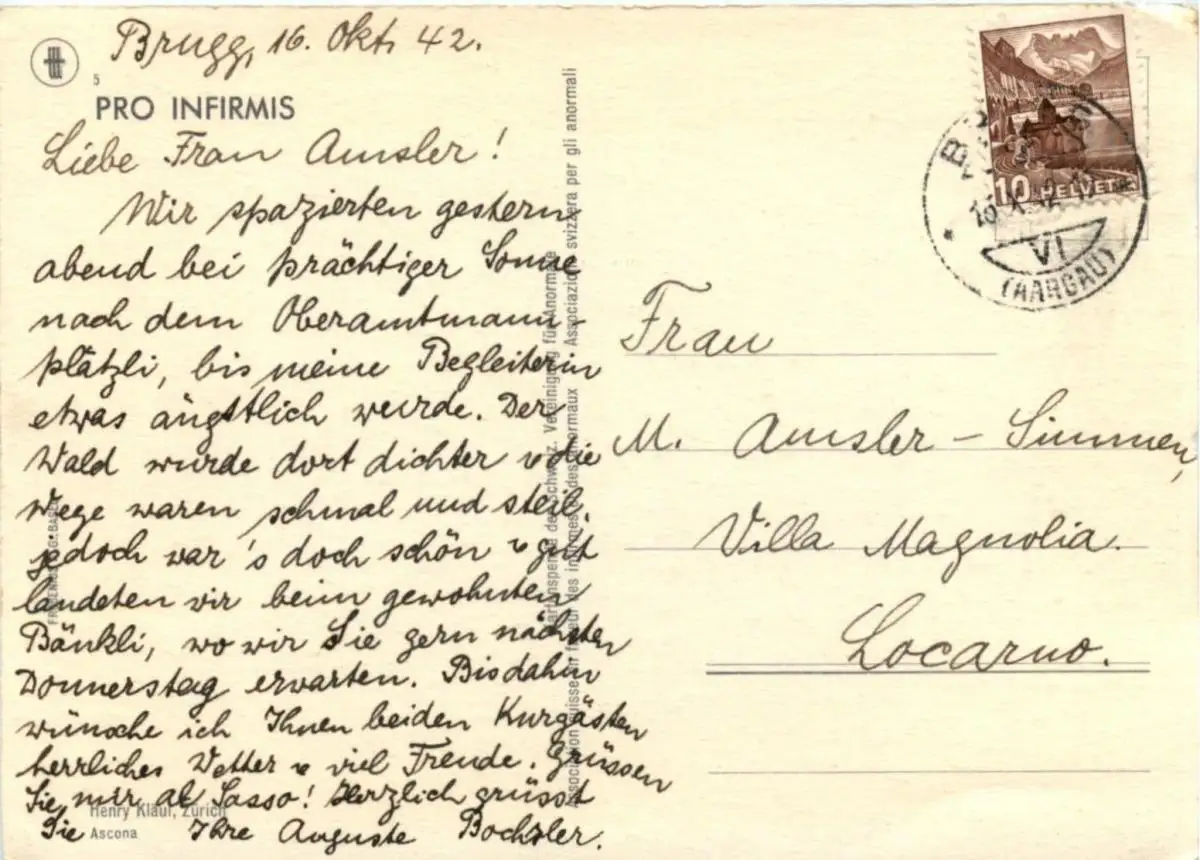 Brugg, 16. Okt. 42.
5
PRO INFIRMIS
Liebe Frau Amsler!
Wir spazierten gestern
abend bei prächtiger Sonne
nach dem Oberamtmann-
plätzli, bis meine Begleiterin
etwas ängstlich wurde. Der
Wald wurde dort dichter u die
Wege waren schmal und steil,
jedoch war's doch schön u gut
landeten wir beim gewohnten
Bänkli, wo wir Sie gern nächsten
Donnerstag erwarten. Bis dahin
wünsche ich Ihnen beiden Kurgästen
herrliches Wetter u viel Freude. Grüssen
Sie mir al Sasso! Herzlich grüsst
Sie Ihre Auguste
Henry Klauf, Zürich
Ascona
Kartenspende der Schweiz. Vereinigung für Anormale
Association suisse en faveur des infirmes et des anormaux Associazione svizzera per gli anormali
10 HELVETIA
16.X.42
VI
(AARGAU)
Frau
M. Amsler-Simmen,
Villa Magnolia.
Locarno.